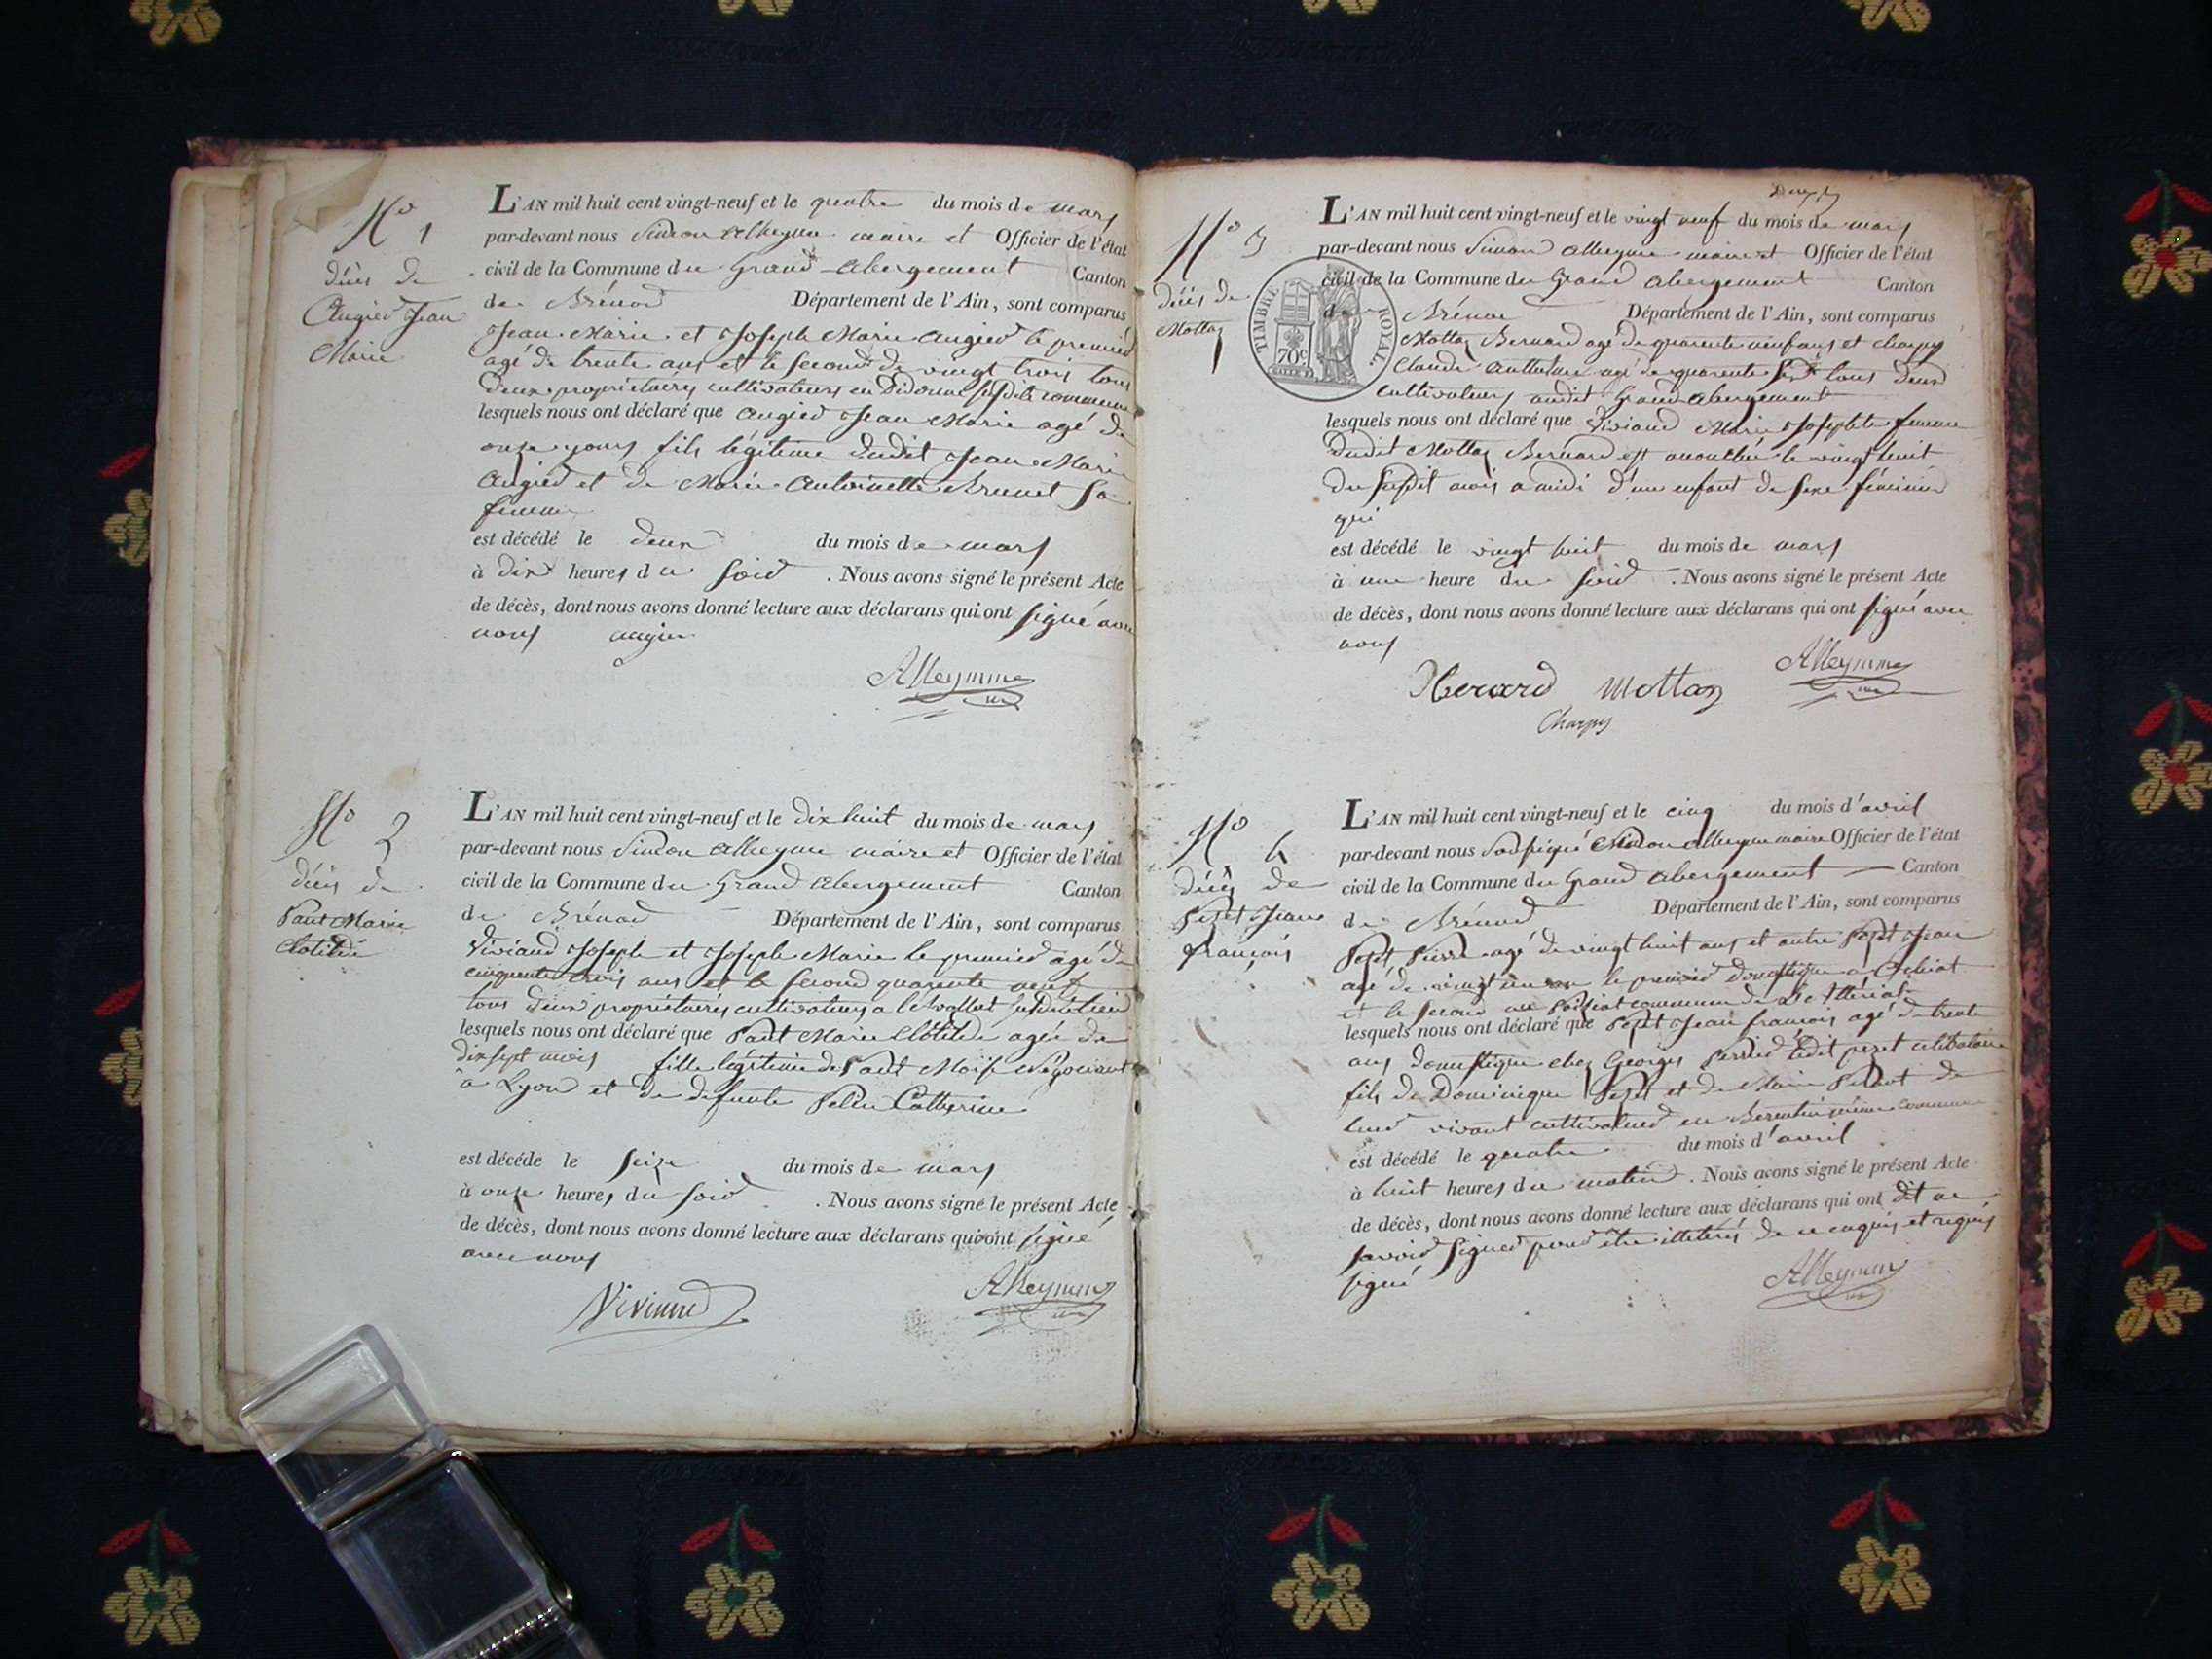 No 1
décès de
Augier Jean
Marie
L'AN mil huit cent vingt-neuf et le quatre du mois de mars
par-devant nous Simeon Alleymme maire et Officier de l'état
civil de la Commune du Grand abergement Canton
de Brénod Département de l'Ain, sont comparus
Jean Marie et Joseph Marie Augier le premier
agé de trente ans et le second de vingt trois tous
deux propriétaires cultivateurs en susdite commune
lesquels nous ont déclaré que Augier Jean Marie agé de
onze jours fils légitime dudit Jean Marie
Augier et de Marie Antoinette Brunet sa
femme
est décédé le deux du mois de mars
à dix heures du soir . Nous avons signé le présent Acte
de décès, dont nous avons donné lecture aux déclarans qui ont signé avec
nous augier
Alleymme
No 2
décès de
Paut Marie
Clotilde
L'AN mil huit cent vingt-neuf et le dix huit du mois de mars
par-devant nous Simeon Alleymme maire et Officier de l'état
civil de la Commune du Grand abergement Canton
de Brénod Département de l'Ain, sont comparus
Viviand Joseph et Joseph Marie le premier agé de
cinquante trois ans et le second quarante neuf
tous deux propriétaires cultivateurs a
lesquels nous ont déclaré que Paut Marie Clotilde agée de
dix sept mois fille légitime de Paut négociant
à Lyon et de defunte Catherine
est décédé le seize du mois de mars
à onze heures du soir . Nous avons signé le présent Acte
de décès, dont nous avons donné lecture aux déclarans qui ont signé
avec nous
Alleymme
No 3
décès de
Mottaz
TIMBRE ROYAL.
70c
L'AN mil huit cent vingt-neuf et le vingt neuf du mois de mars
par-devant nous Simeon Alleymme maire et Officier de l'état
civil de la Commune du Grand abergement Canton
de Brénod Département de l'Ain, sont comparus
Mottaz Bernard agé de quarante neuf ans et charpy
Claude agé de quarante sept tous deux
cultivateurs audit Grand abergement
lesquels nous ont déclaré que Viviand Marie Josephte femme
dudit Mottaz Bernard est accouchée le vingt huit
du susdit mois a midi d'un enfant de sexe féminin
qui
est décédé le vingt huit du mois de mars
à une heure du soir . Nous avons signé le présent Acte
de décès, dont nous avons donné lecture aux déclarans qui ont signé avec
nous
Berard Mottaz
Alleymme
Charpy
No 4
décès de
Petet Jean
françois
L'AN mil huit cent vingt-neuf et le cinq du mois d'avril
par-devant nous soussigné Simeon Alleymme maire Officier de l'état
civil de la Commune du Grand abergement Canton
de Brénod Département de l'Ain, sont comparus
Petet Pierre agé de vingt huit ans et autre Petet Jean
agé de vingt un ans le premier domestique a
et le second au commune de
lesquels nous ont déclaré que Petet Jean françois agé de trente
ans domestique chez Georges Perrier ledit petet celibataire
fils de Dominique Petet et de Marie de
leur vivant cultivateurs en même commune
est décédé le quatre du mois d'avril
à huit heures du matin . Nous avons signé le présent Acte
de décès, dont nous avons donné lecture aux déclarans qui ont dit ne
savoir signer pour être illetérés de ce enquis et requis
signé
Alleymme